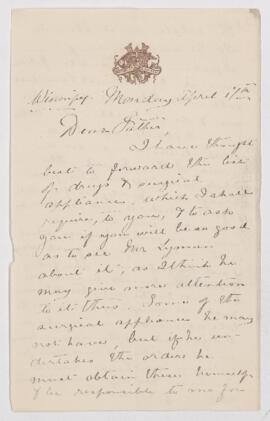 Winnipeg Monday April
Dear Father,
I have thought
best to forward the list
of drugs & surgical
appliances which I shall
require, to you, & to ask
you if you will be so good
as to see Mr Lyman
about it, as I think he
may give more attention
to it thus. Some of the
surgical appliances he may
not have, but if he un-
dertakes the order he
must obtain them himself
& be responsible to me for